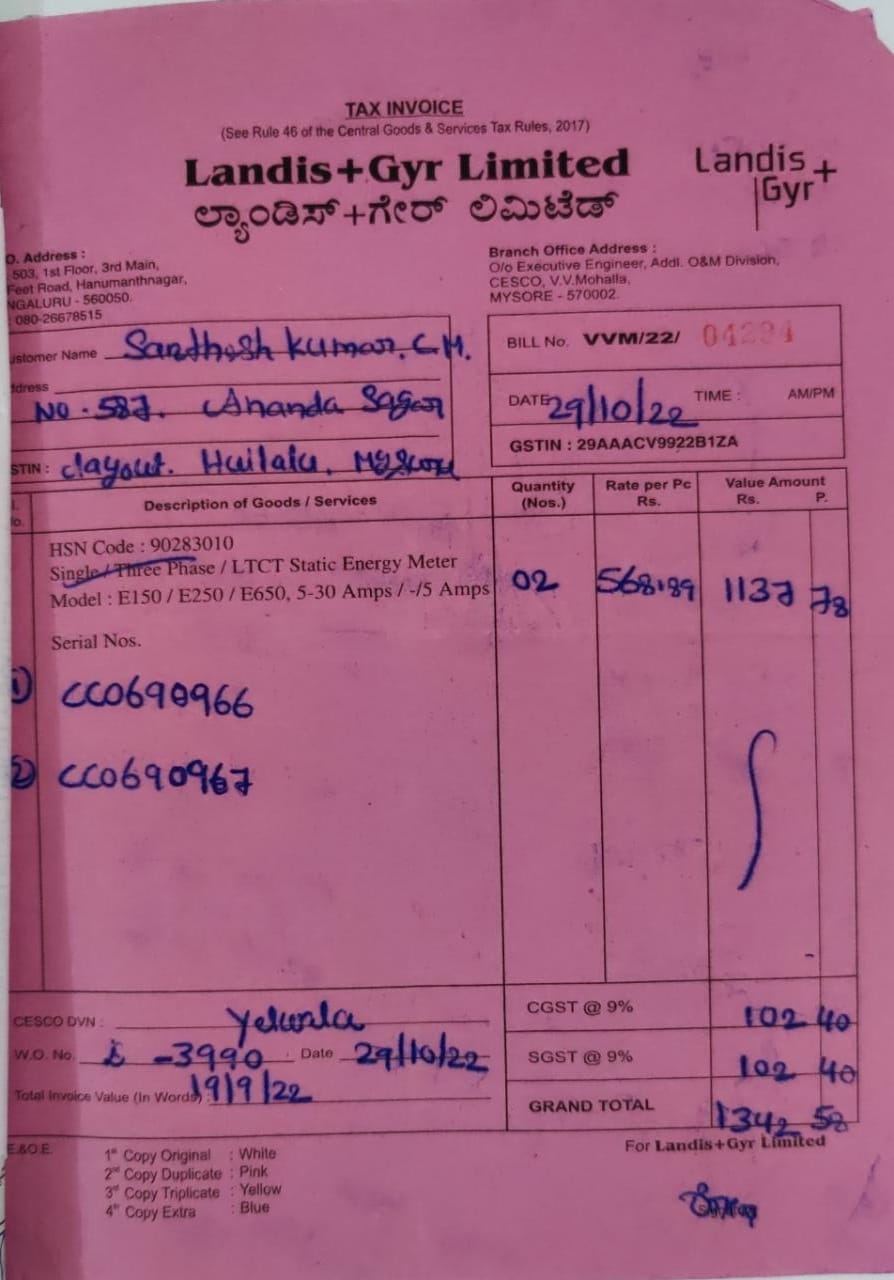 TAX INVOICE
(See Rule 46 of the Central Goods & Services Tax Rules, 2017)
Landis+Gyr Limited
ಲ್ಯಾಂಡಿಸ್+ಗೇರ್ ಲಿಮಿಟೆಡ್
Landis
Gyr+
O. Address :
503, 1st Floor, 3rd Main,
Feet Road, Hanumanthnagar,
NGALURU - 560050.
: 080-26678515
Branch Office Address :
O/o Executive Engineer, Addl. O&M Division,
CESCO, V.V.Mohalla,
MYSORE - 570002.
ustomer Name Santhosh Kumar. C.M.
ddress
No. 587. Ananda Sagar
STIN : layout. Huilalu. Mysore
BILL No. VVM/22/ 04294
DATE 29/10/22 TIME : AM/PM
GSTIN : 29AAACV9922B1ZA
l. o. Description of Goods / Services Quantity (Nos.) Rate per Pc Rs. Value Amount Rs. P.
HSN Code : 90283010
Single / Three Phase / LTCT Static Energy Meter
Model : E150 / E250 / E650, 5-30 Amps / -/5 Amps 02 568.89 1137 78
Serial Nos.
1) CC0690966
2) CC0690967
CESCO DVN : Yelwala
CGST @ 9% 102 40
W.O. No. -3990 Date 29/10/22
SGST @ 9% 102 40
Total Invoice Value (In Words) : 19/9/22
GRAND TOTAL 1342 58
E.&O.E.
1st Copy Original : White
2nd Copy Duplicate : Pink
3rd Copy Triplicate : Yellow
4th Copy Extra : Blue
For Landis+Gyr Limited